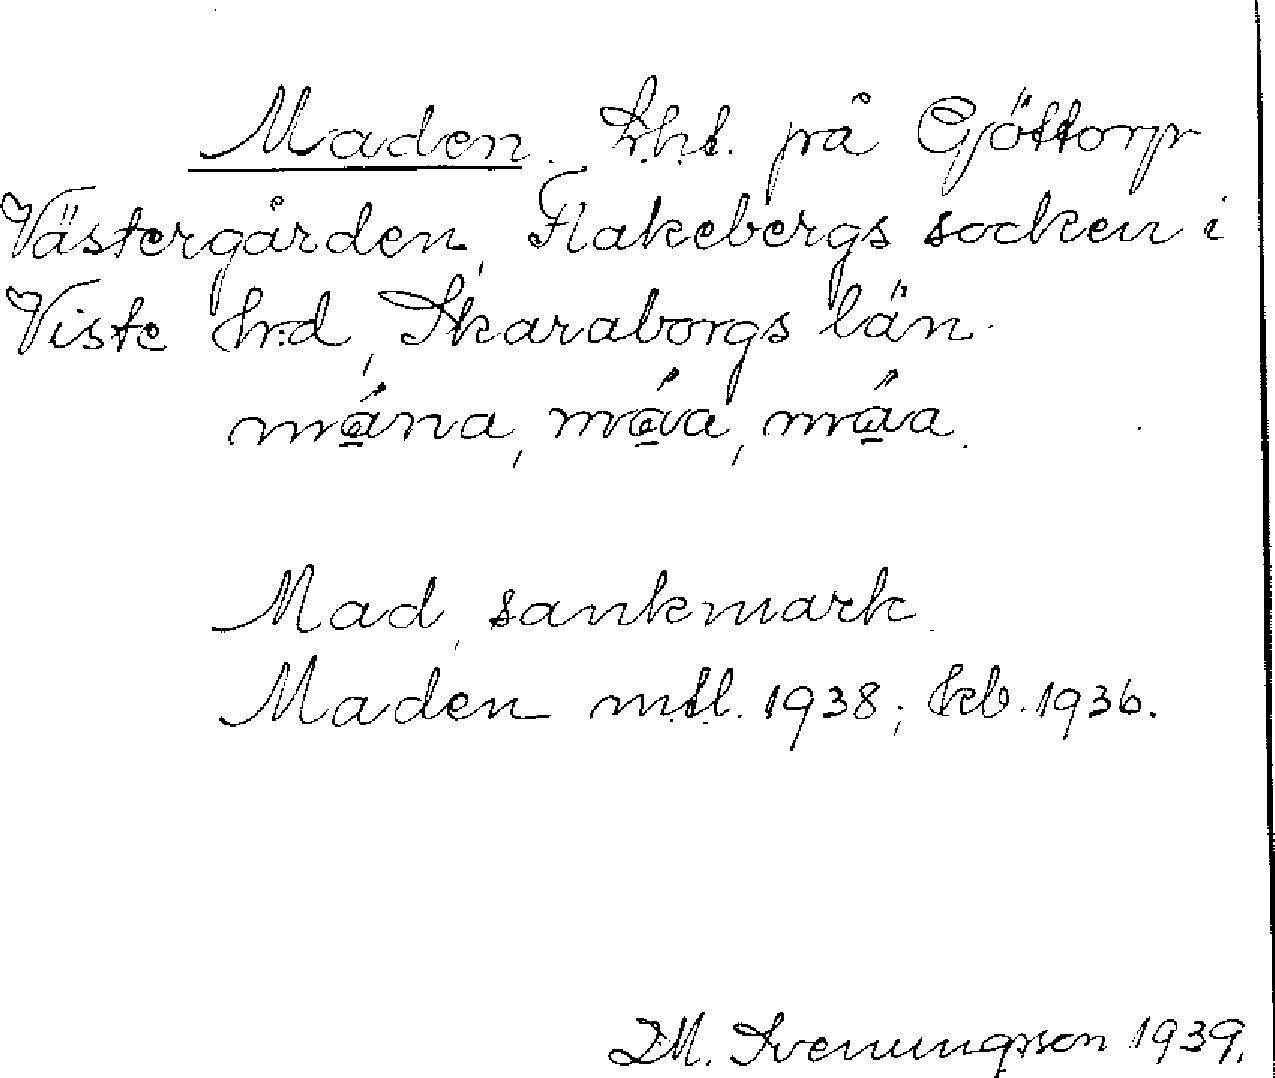 Maden. t.ht. på Göttorp
Västergården, Flakebergs socken i
Viste hrd, Skaraborgs län.
mána, máa, máa.
Mad, sankmark.
Maden mtl. 1938; kb. 1936.
D.M. Svenungsson 1939.